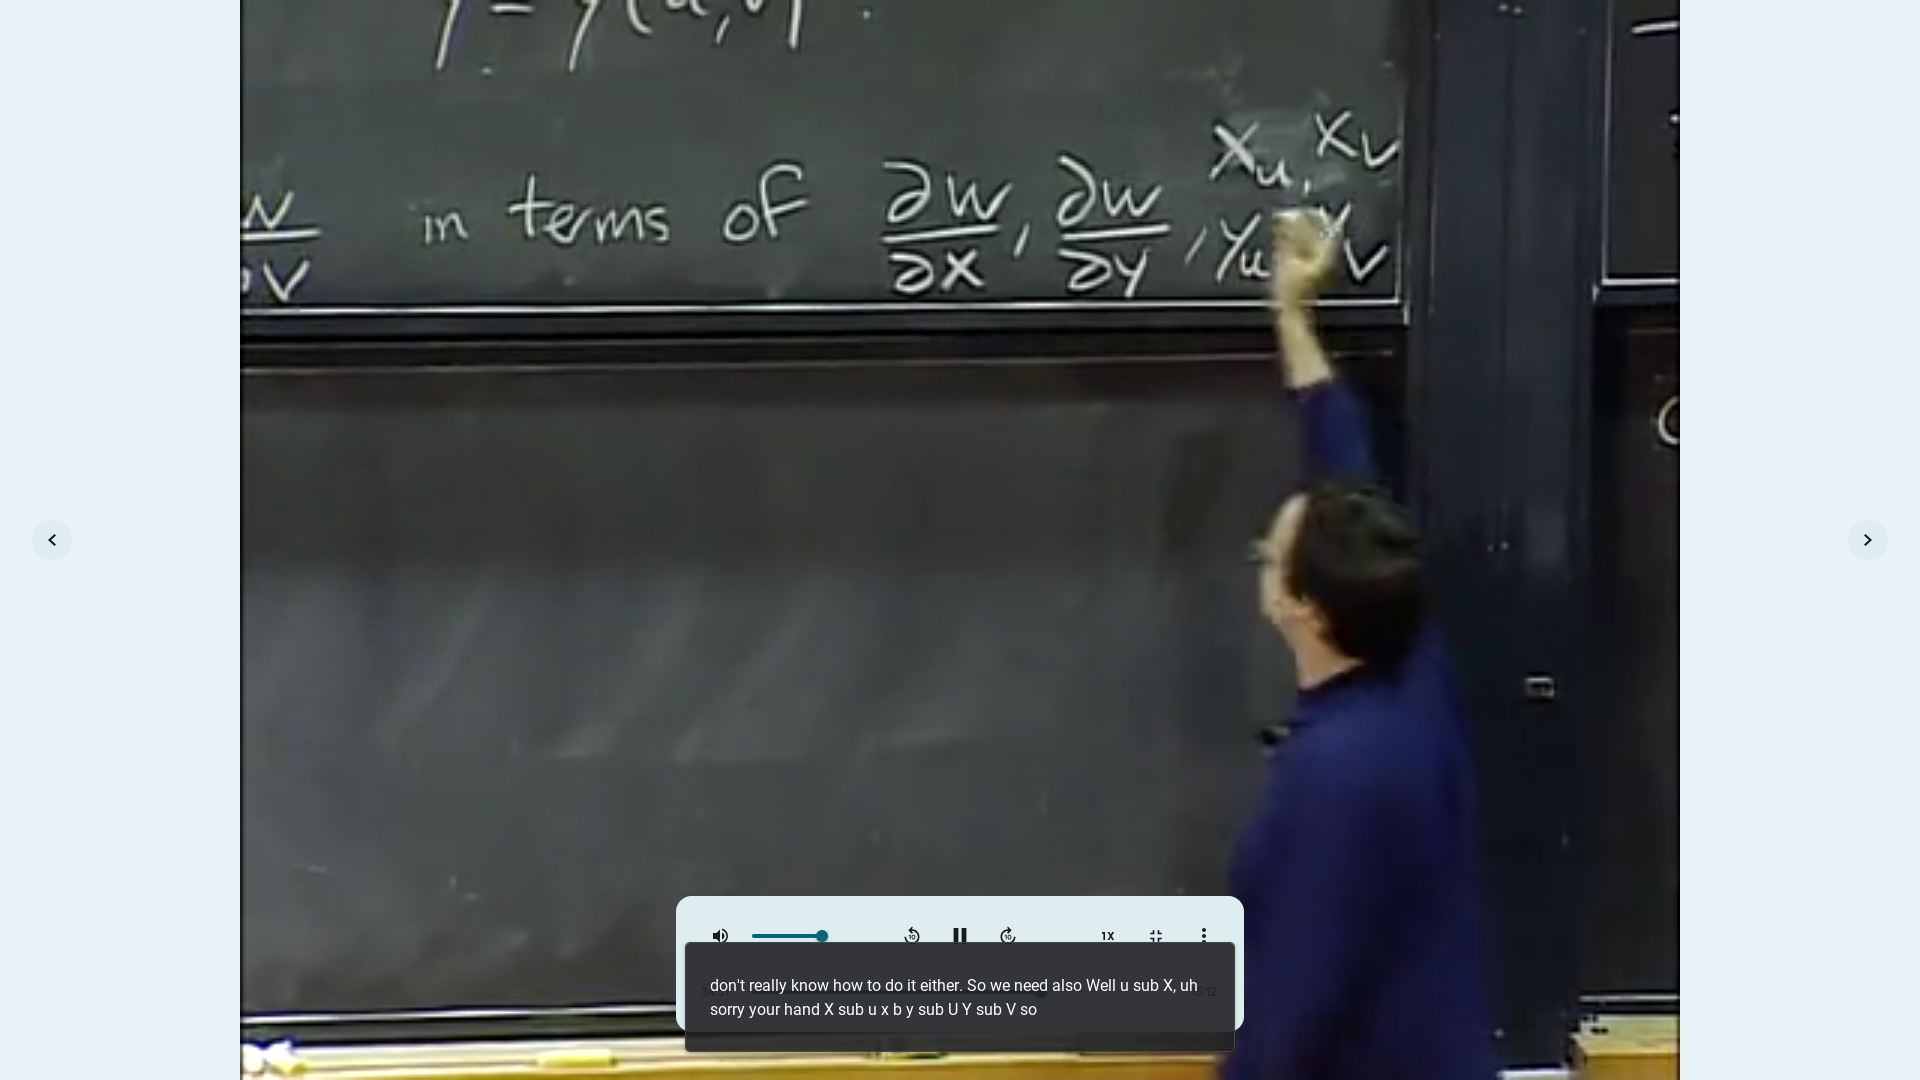 y = y(u,v)
in terms of ∂w/∂x, ∂w/∂y, xu, xv
yu, yv
1X
don't really know how to do it either. So we need also Well u sub X, uh
sorry your hand X sub u x b y sub U Y sub V so